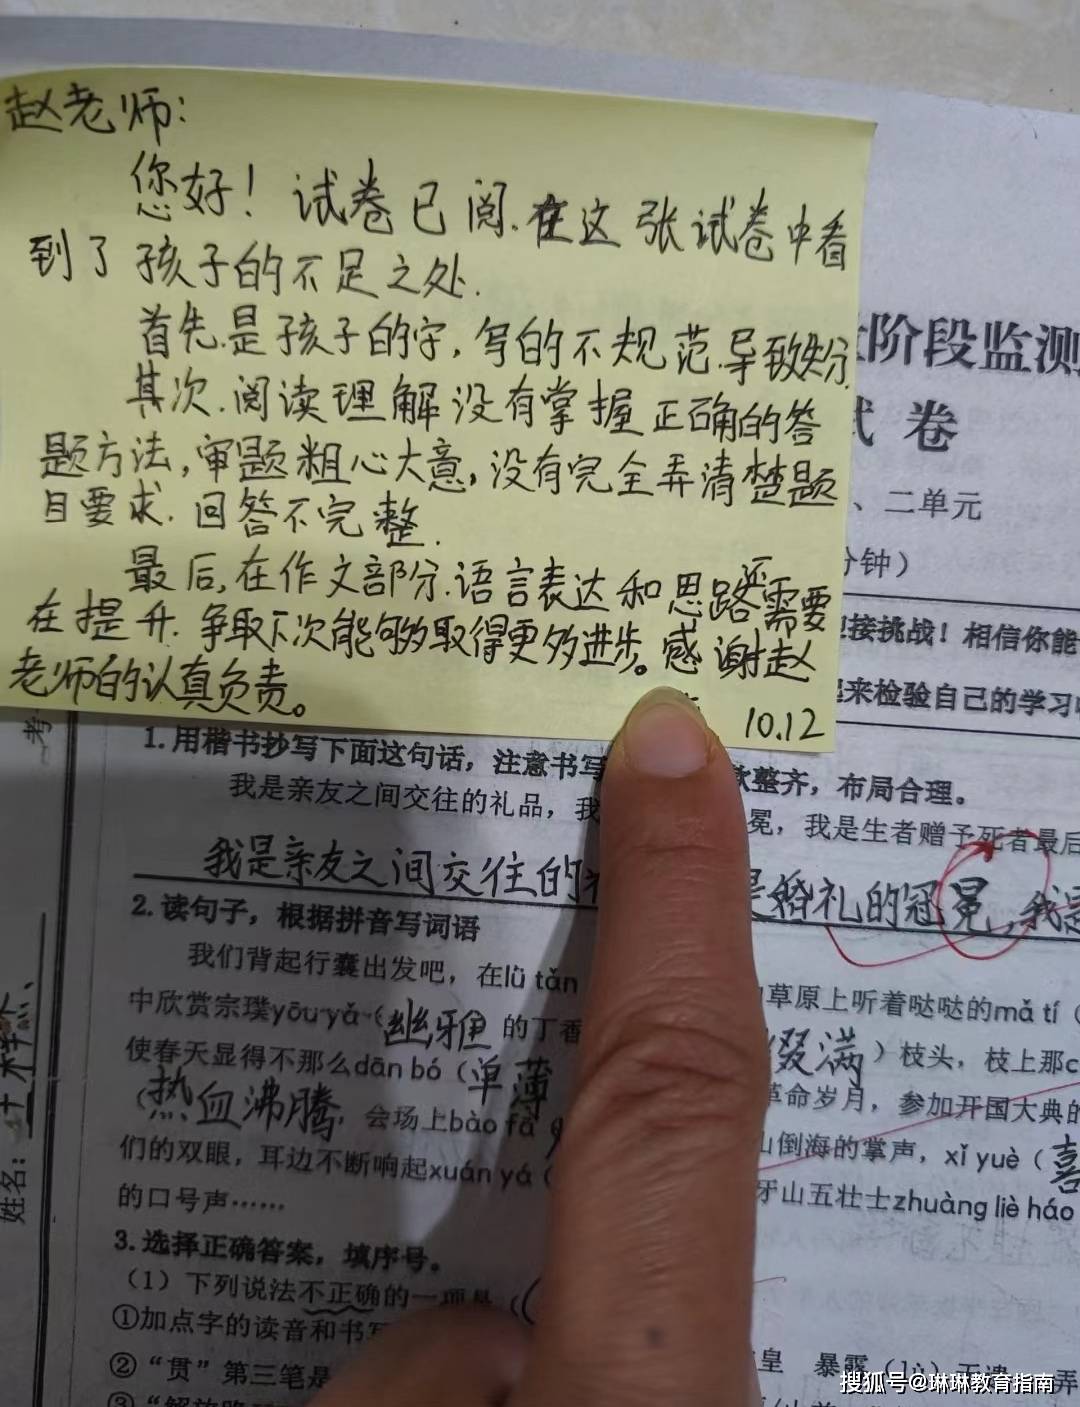 赵老师：
您好！试卷已阅.在这张试卷中看
到了孩子的不足之处.
首先.是孩子的字，写的不规范.导致失分.
其次.阅读理解没有掌握正确的答
题方法，审题粗心大意，没有完全弄清楚题
目要求.回答不完整.
最后，在作文部分.语言表达和思路还需要
在提升.争取下次能够取得更多进步。感谢赵
老师的认真负责。
10.12
阶段监测
试卷
、二单元
分钟）
迎接挑战！相信你能
起来检验自己的学习
1.用楷书抄写下面这句话，注意书写 整齐，布局合理。
我是亲友之间交往的礼品，我 冕，我是生者赠予死者最后
我是亲友之间交往的 是婚礼的冠冕，我是
2.读句子，根据拼音写词语
我们背起行囊出发吧，在lǜ tǎn 草原上听着哒哒的mǎ tí（
中欣赏宗璞yōu yǎ（幽雅 的丁香 缀满）枝头，枝上那
使春天显得不那么dān bó（单薄 革命岁月，参加开国大典的
（热血沸腾，会场上bào fā 山倒海的掌声，xǐ yuè（喜
们的双眼，耳边不断响起xuán yá（ 牙山五壮士zhuàng liè háo
的口号声……
3.选择正确答案，填序号。
（1）下列说法不正确的一项是（
①加点字的读音和书写 皇 暴露（lù）无遗 弄
②“贯”第三笔是
姓名：
搜狐号@琳琳教育指南